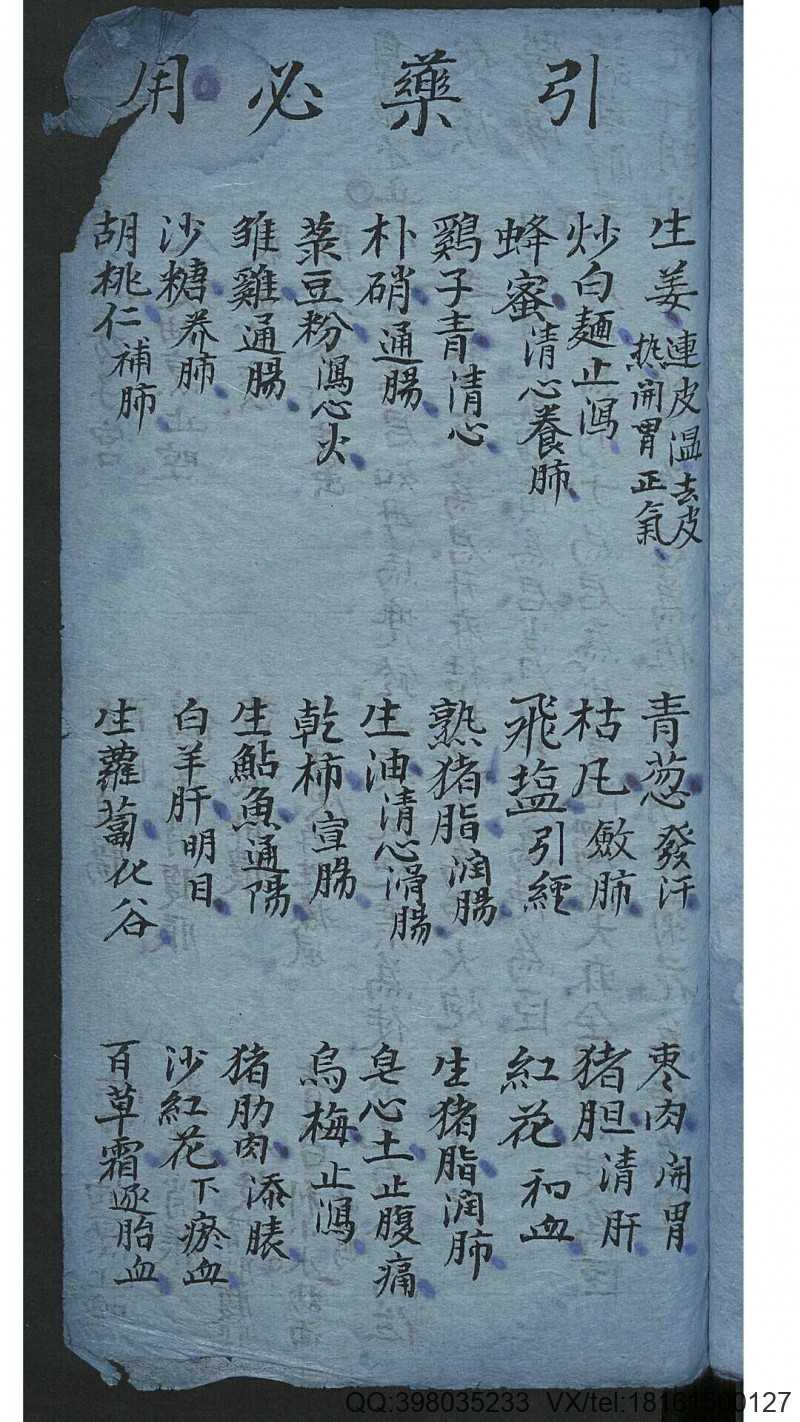 引藥必用
生姜 連皮温去皮熱開胃正氣
炒白麵止瀉
蜂蜜清心養肺
鷄子青清心
朴硝通腸
菉豆粉瀉心火
雏雞通腸
沙糖养肺
胡桃仁補肺
青葱發汗
枯凡斂肺
飛塩引經
熟猪脂润腸
生油清心滑腸
乾柿宣腸
生鮎魚通陽
白羊肝明目
生蘿蔔化谷
枣肉開胃
猪胆清肝
紅花和血
生猪脂润肺
皂心土止腹痛
烏梅止瀉
猪肋肉添膘
沙紅花下瘀血
百草霜逐胎血
QQ:398035233 VX/tel:18161500127